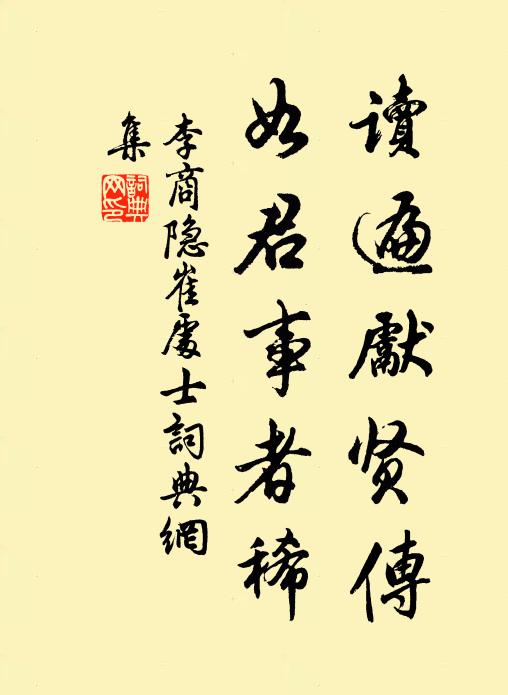 讀遍獻贤傳
如君事者稀
李商隐崔處士詞典網
集
詞典
网印